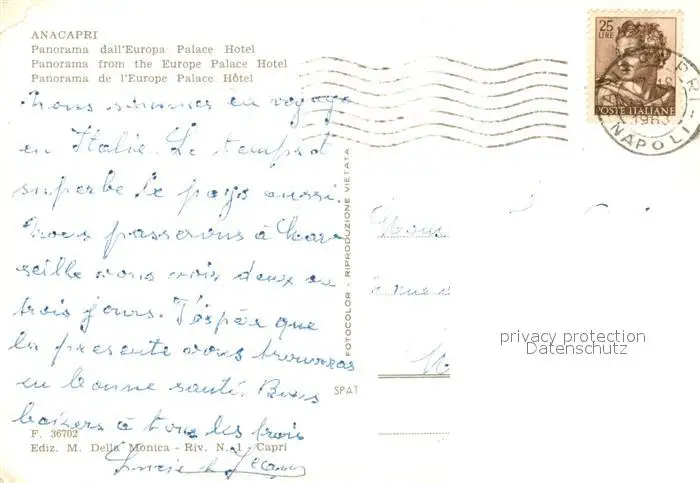 ANACAPRI
Panorama dall'Europa Palace Hotel
Panorama from the Europe Palace Hotel
Panorama de l'Europe Palace Hôtel
Nous sommes en voyage
en Italie. Le temps est
superbe le pays aussi.
Nous passerons à Mar
seille vous voir deux ou
trois jours. J'espère que
la présente vous trouveras
en bonne santé. Bons
baisers à tous les trois
Lucie
F. 36702
Ediz. M. Della Monica - Riv. N. 1 - Capri
FOTOCOLOR - RIPRODUZIONE VIETATA
SPAT
25
LIRE
POSTE ITALIANE
1963
NAPOLI
privacy protection
Datenschutz